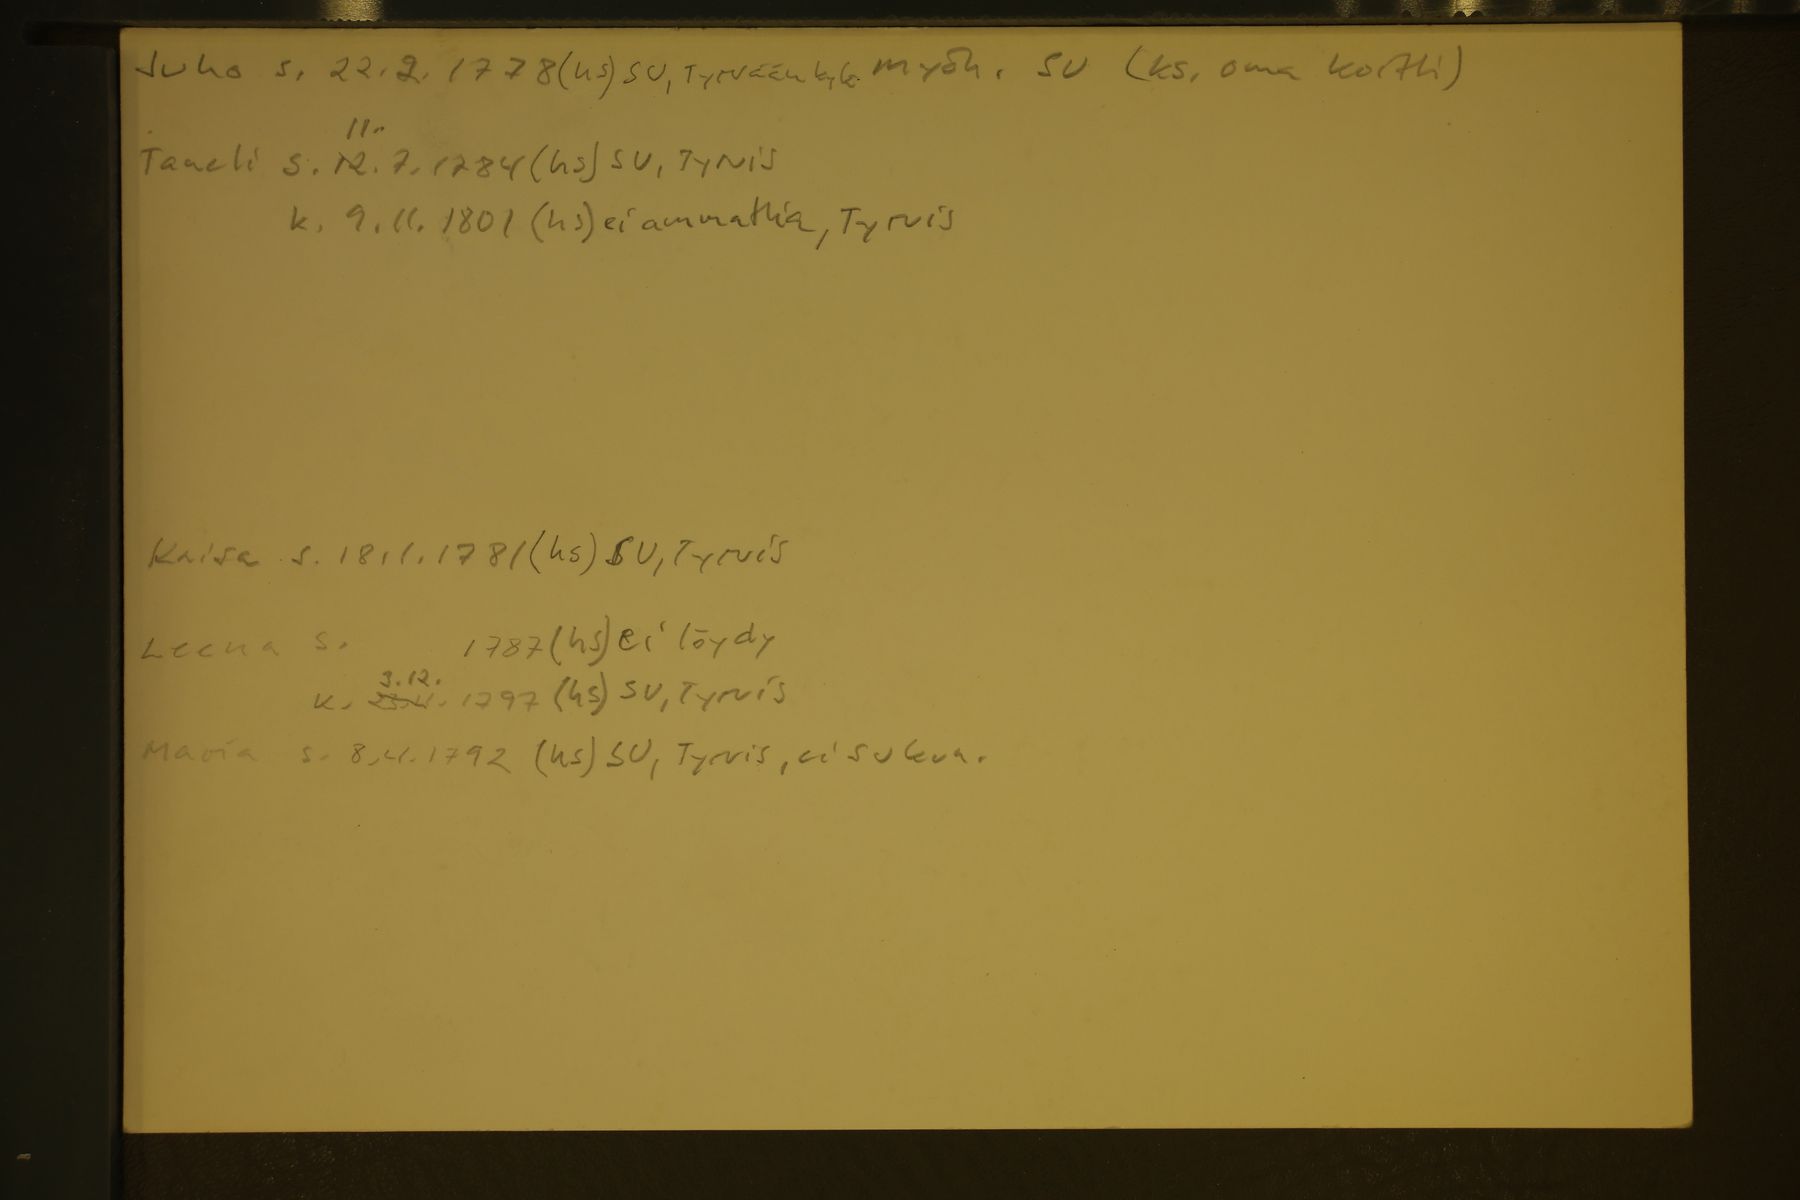 Juho s. 22.2. 1778 (hs) SU, Tyrvään kylä myöh. SU (ks. oma kortti)
11.
Taneli s. 12. 7. 1784 (hs) SU, Tyrvis
k. 9.11. 1801 (hs) ei ammattia, Tyrvis
Kaisa s. 18.1.1781 (hs) SU, Tyrvis
Leena s. 1787 (hs) ei löydy
3.12.
k. 1797 (hs) SU, Tyrvis
Maria s. 8.4.1792 (hs) SU, Tyrvis, ei sukun.